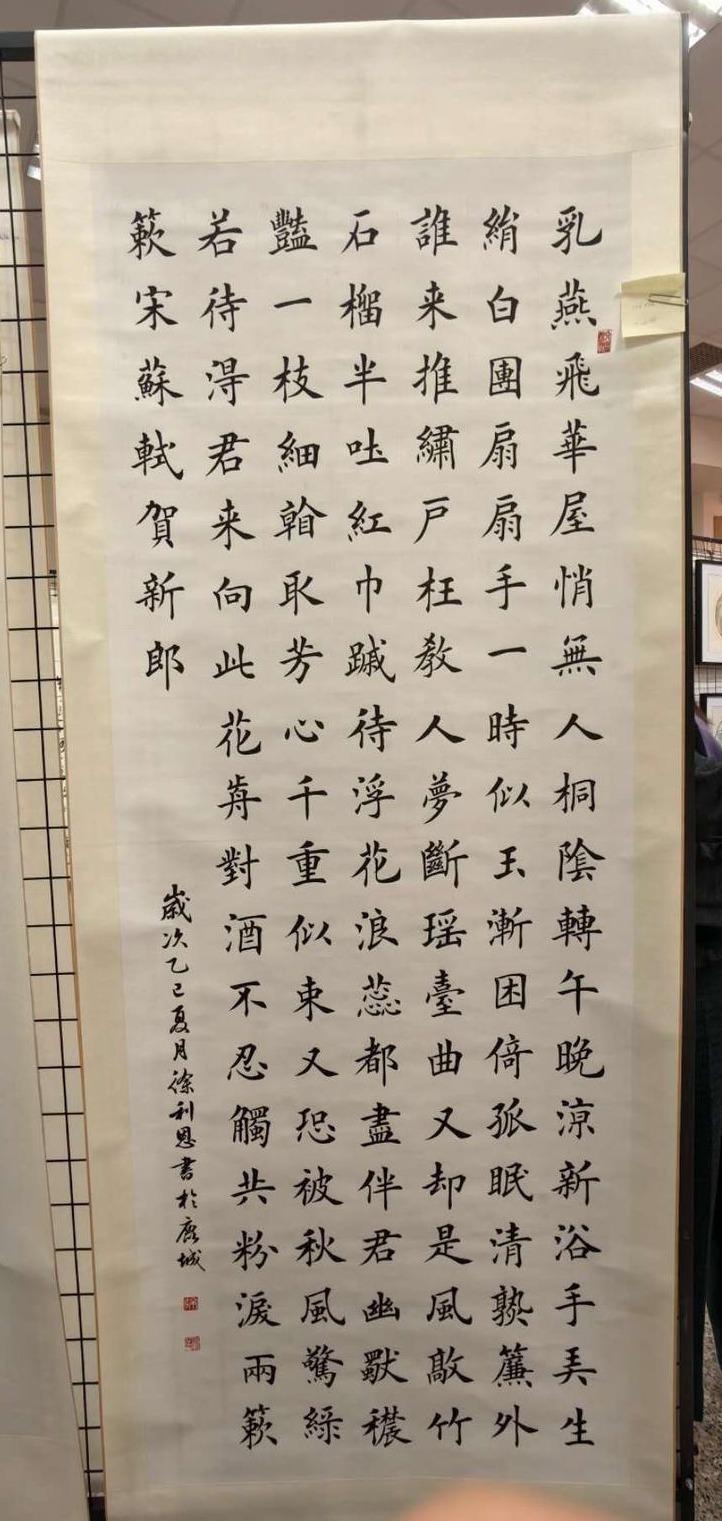 乳燕飛華屋悄無人桐陰轉午晚涼新浴手弄生
綃白團扇扇手一時似玉漸困倚孤眠清熟簾外
誰来推繡戶枉教人夢斷瑤臺曲又却是風敲竹
石榴半吐紅巾蹙待浮花浪蕊都盡伴君幽獨穠
豔一枝細看取芳心千重似束又恐被秋風驚綠
若待得君来向此花前對酒不忍觸共粉淚兩簌
簌宋蘇軾賀新郎
歲次乙巳夏月徐利恩書於鹿城